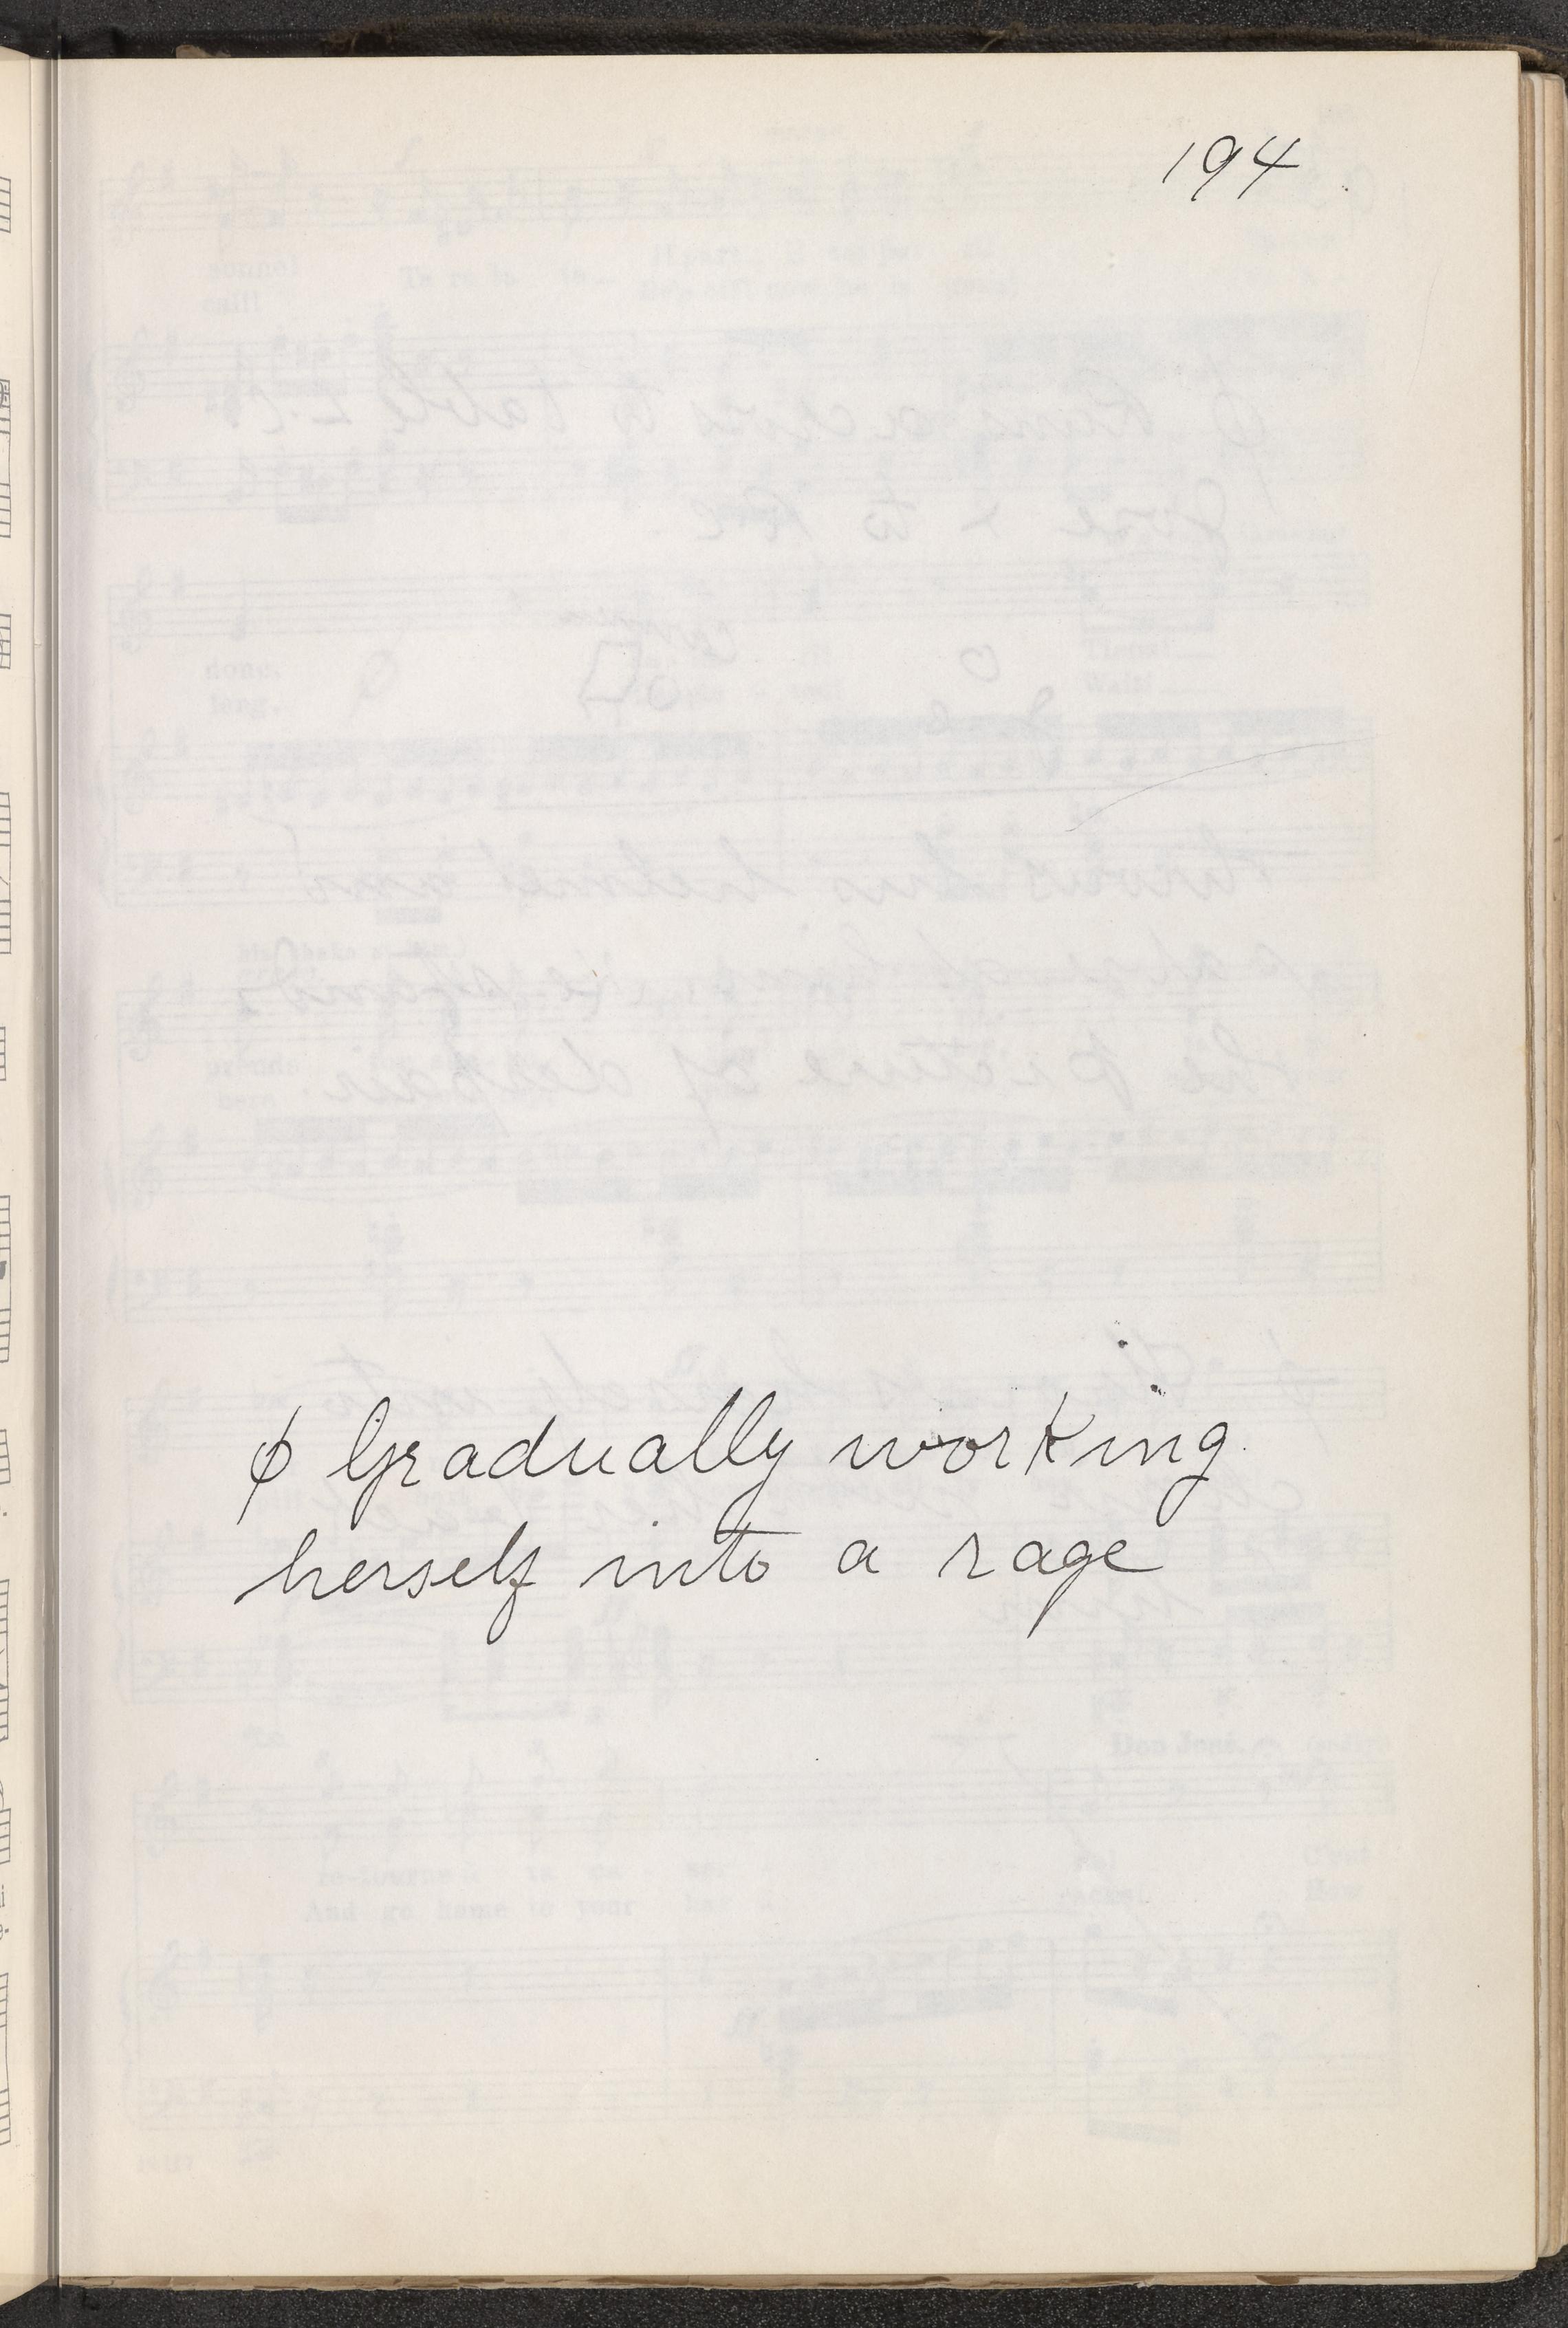 194
φ Gradually working
herself into a rage